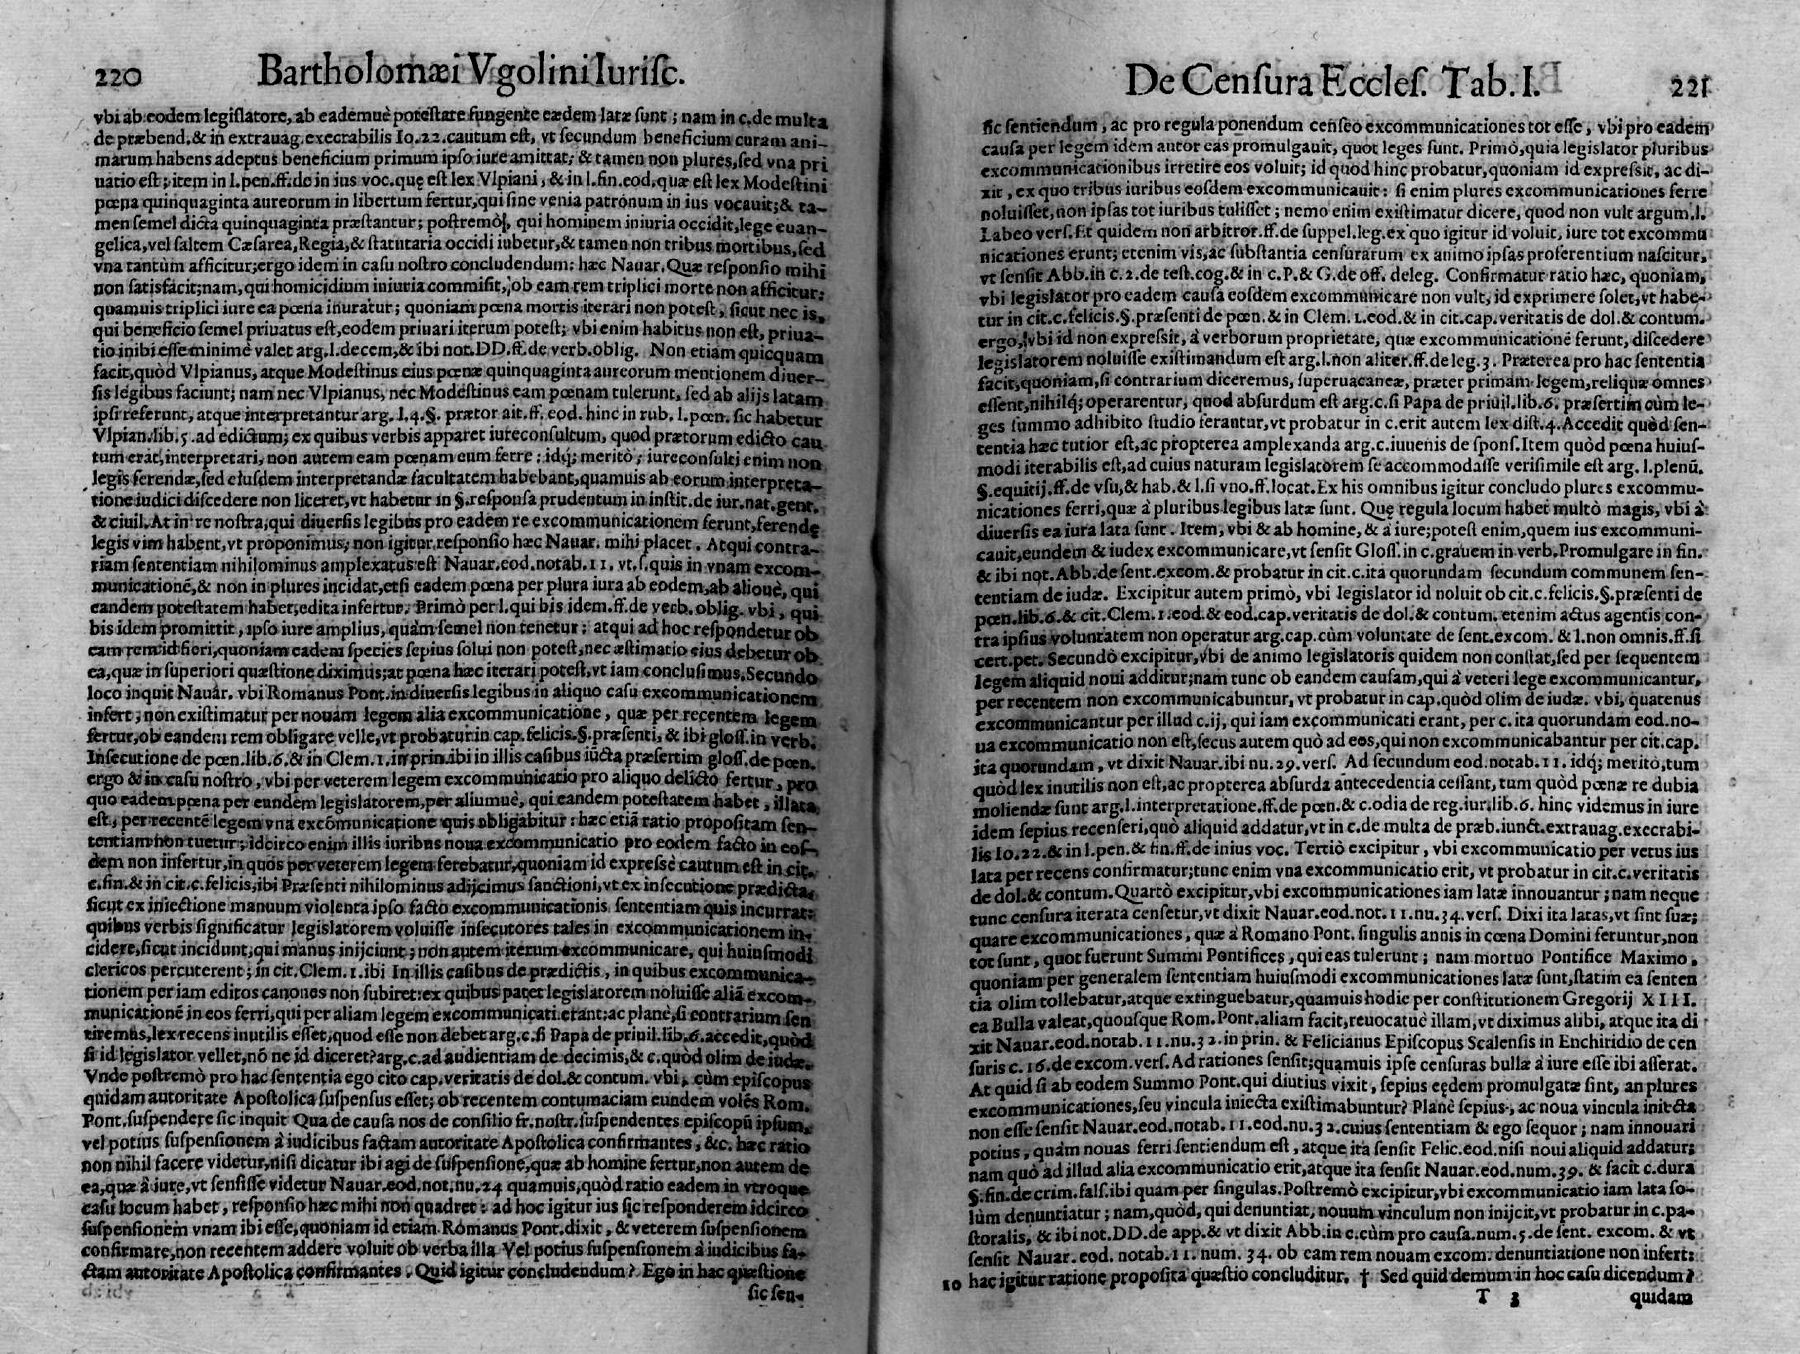 220 Bartholomæi Vgolini Iurisc.
vbi ab eodem legislatore, ab eademuè potestate fungente eædem latæ sunt; nam in c. de multa
de præbend. & in extrauag. execrabilis Io. 22. cautum est, vt secundum beneficium curam ani-
marum habens adeptus beneficium primum ipso iure amittat; & tamen non plures, sed vna pri
uatio est; item in l. pen. ff. de in ius voc. quę est lex Vlpiani, & in l. fin. eod. quæ est lex Modestini
pœna quinquaginta aureorum in libertum fertur, qui sine venia patronum in ius vocauit; & ta-
men semel dicta quinquaginta præstantur; postremò, qui hominem iniuria occidit, lege euan-
gelica, vel saltem Cæsarea, Regia, & statutaria occidi iubetur, & tamen non tribus mortibus, sed
vna tantùm afficitur; ergo idem in casu nostro concludendum: hæc Nauar. Quæ responsio mihi
non satisfacit; nam, qui homicidium iniuria commisit, ob eam rem triplici morte non afficitur:
quamuis triplici iure ea pœna inuratur; quoniam pœna mortis iterari non potest, sicut nec is,
qui beneficio semel priuatus est, eodem priuari iterum potest; vbi enim habitus non est, priua-
tio inibi esse minimè valet arg. l. decem, & ibi not. DD. ff. de verb. oblig. Non etiam quicquam
facit, quòd Vlpianus, atque Modestinus eius pœnæ quinquaginta aureorum mentionem diuer-
sis legibus faciunt; nam nec Vlpianus, nec Modestinus eam pœnam tulerunt, sed ab alijs latam
ipsi referunt, atque interpretantur arg. l. 4. §. prætor ait. ff. eod. hinc in rub. l. pœn. sic habetur
Vlpian. lib. 5. ad edictum; ex quibus verbis apparet iureconsultum, quod prætorum edicto cau
tum erat, interpretari, non autem eam pœnam eum ferre: idq; meritò; iureconsulti enim non
legis ferendæ, sed eiusdem interpretandæ facultatem habebant, quamuis ab eorum interpreta-
tione iudici discedere non liceret, vt habetur in §. responsa prudentum in instit. de iur. nat. gent.
& ciuil. At in re nostra, qui diuersis legibus pro eadem re excommunicationem ferunt, ferendę
legis vim habent, vt proponimus; non igitur responsio hæc Nauar. mihi placet. Atqui contra-
riam sententiam nihilominus amplexatus est Nauar. eod. notab. 11. vt, s. quis in vnam excom-
municationē, & non in plures incidat, etsi eadem pœna per plura iura ab eodem, ab alioué, qui
eandem potestatem habet, edita infertur. Primò per l. qui bis idem. ff. de verb. oblig. vbi, qui
bis idem promittit, ipso iure amplius, quàm semel non tenetur; atqui ad hoc respondetur ob
eam rem id fieri, quoniam eadem species sepius solui non potest, nec æstimatio eius debetur ob
ea, quæ in superiori quæstione diximus; at pœna hæc iterari potest, vt iam conclusimus. Secundo
loco inquit Nauar. vbi Romanus Pont. in diuersis legibus in aliquo casu excommunicationem
infert; non existimatur per nouam legem alia excommunicatione, quæ per recentem legem
fertur, ob eandem rem obligare velle, vt probatur in cap. felicis. §. præsenti, & ibi gloss. in verb.
Insecutione de pœn. lib. 6. & in Clem. 1. in prin. ibi in illis casibus iūcta præsertim gloss. de pœn.
ergo & in casu nostro, vbi per veterem legem excommunicatio pro aliquo delicto fertur, pro
quo eadem pœna per eundem legislatorem, per aliumuè, qui eandem potestatem habet, illata
est, per recentē legem vna excōmunicatione quis obligabitur: hæc etiā ratio propositam sen-
tentiam non tuetur; idcirco enim illis iuribus noua excommunicatio pro eodem facto in eos-
dem non infertur, in quos per veterem legem ferebatur, quoniam id expressè cautum est in cit.
c. fin. & in cit. c. felicis, ibi Præsenti nihilominus adijcimus sanctioni, vt ex insecutione prædicta,
sicut ex iniectione manuum violenta ipso facto excommunicationis sententiam quis incurrat:
quibus verbis significatur legislatorem voluisse insecutores tales in excommunicationem in-
cidere, sicut incidunt, qui manus inijciunt; non autem iterum excommunicare, qui huiusmodi
clericos percuterent; in cit. Clem. 1. ibi In illis casibus de prædictis, in quibus excommunica-
tionem per iam editos canones non subiret: ex quibus patet legislatorem noluisse aliā excom-
municationē in eos ferri, qui per aliam legem excommunicati erant: ac planè, si contrarium sen
tiremus, lex recens inutilis esset, quod esse non debet arg. c. si Papa de priuil. lib. 6. accedit, quòd
si id legislator vellet, nō ne id diceret? arg. c. ad audientiam de decimis, & c. quòd olim de iudæ.
Vnde postremò pro hac sententia ego cito cap. veritatis de dol. & contum. vbi, cùm episcopus
quidam autoritate Apostolica suspensus esset; ob recentem contumaciam eundem volēs Rom.
Pont. suspendere sic inquit Qua de causa nos de consilio fr. nostr. suspendentes episcopū ipsum,
vel potius suspensionem à iudicibus factam autoritate Apostolica confirmantes, &c. hæc ratio
non nihil facere videtur, nisi dicatur ibi agi de suspensione, quæ ab homine fertur, non autem de
ea, quæ à iure, vt sensisse videtur Nauar. eod. not. nu. 24 quamuis, quòd ratio eadem in vtroque
casu locum habet, responsio hæc mihi non quadret: ad hoc igitur ius sic responderem idcirco
suspensionem vnam ibi esse, quoniam id etiam Romanus Pont. dixit, & veterem suspensionem
confirmare, non recentem addere voluit ob verba illa Vel potius suspensionem à iudicibus fa-
ctam autoritate Apostolica confirmantes. Quid igitur concludendum? Ego in hac quæstione
sic sen-
De Censura Eccles. Tab. I. 221
sic sentiendum, ac pro regula ponendum censeo excommunicationes tot esse, vbi pro eadem
causa per legem idem autor eas promulgauit, quot leges sunt. Primò, quia legislator pluribus
excommunicationibus irretire eos voluit; id quod hinc probatur, quoniam id expressit, ac di-
xit, ex quo tribus iuribus eosdem excommunicauit: si enim plures excommunicationes ferre
noluisset, non ipsas tot iuribus tulisset; nemo enim existimatur dicere, quod non vult argum. l.
Labeo vers. Et quidem non arbitror. ff. de suppel. leg. ex quo igitur id voluit, iure tot excommu
nicationes erunt; etenim vis, ac substantia censurarum ex animo ipsas proferentium nascitur,
vt sensit Abb. in c. 2. de test. cog. & in c. P. & G. de off. deleg. Confirmatur ratio hæc, quoniam,
vbi legislator pro eadem causa eosdem excommunicare non vult, id exprimere solet, vt habe-
tur in cit. c. felicis. §. præsenti de pœn. & in Clem. 1. eod. & in cit. cap. veritatis de dol. & contum.
ergo, vbi id non expressit, à verborum proprietate, quæ excommunicationē ferunt, discedere
legislatorem noluisse existimandum est arg. l. non aliter. ff. de leg. 3. Præterea pro hac sententia
facit, quoniam, si contrarium diceremus, superuacaneæ, præter primam legem, reliquæ omnes
essent, nihilq; operarentur, quod absurdum est arg. c. si Papa de priuil. lib. 6. præsertim cùm le-
ges summo adhibito studio ferantur, vt probatur in c. erit autem lex dist. 4. Accedit quòd sen-
tentia hæc tutior est, ac propterea amplexanda arg. c. iuuenis de spons. Item quòd pœna huius-
modi iterabilis est, ad cuius naturam legislatorem se accommodasse verisimile est arg. l. plenū.
§. equitij. ff. de vsu, & hab. & l. si vno. ff. locat. Ex his omnibus igitur concludo plures excommu-
nicationes ferri, quæ à pluribus legibus latæ sunt. Quę regula locum habet multò magis, vbi à
diuersis ea iura lata sunt. Item, vbi & ab homine, & à iure; potest enim, quem ius excommuni-
cauit, eundem & iudex excommunicare, vt sensit Gloss. in c. grauem in verb. Promulgare in fin.
& ibi not. Abb. de sent. excom. & probatur in cit. c. ita quorundam secundum communem sen-
tentiam de iudæ. Excipitur autem primò, vbi legislator id noluit ob cit. c. felicis. §. præsenti de
pœn. lib. 6. & cit. Clem. 1. eod. & eod. cap. veritatis de dol. & contum. etenim actus agentis con-
tra ipsius voluntatem non operatur arg. cap. cùm voluntate de sent. excom. & l. non omnis. ff. si
cert. pet. Secundò excipitur, vbi de animo legislatoris quidem non constat, sed per sequentem
legem aliquid noui additur; nam tunc ob eandem causam, qui à veteri lege excommunicantur,
per recentem non excommunicabuntur, vt probatur in cap. quòd olim de iudæ. vbi, quatenus
excommunicantur per illud c. ij, qui iam excommunicati erant, per c. ita quorundam eod. no-
ua excommunicatio non est, secus autem quò ad eos, qui non excommunicabantur per cit. cap.
ita quorundam, vt dixit Nauar. ibi nu. 29. vers. Ad secundum eod. notab. 11. idq; meritò, tum
quòd lex inutilis non est, ac propterea absurda antecedentia cessant, tum quòd pœnæ re dubia
moliendæ sunt arg. l. interpretatione. ff. de pœn. & c. odia de reg. iur. lib. 6. hinc videmus in iure
idem sepius recenseri, quò aliquid addatur, vt in c. de multa de præb. iunct. extrauag. execrabi-
lis Io. 22. & in l. pen. & fin. ff. de in ius voc. Tertiò excipitur, vbi excommunicatio per vetus ius
lata per recens confirmatur; tunc enim vna excommunicatio erit, vt probatur in cit. c. veritatis
de dol. & contum. Quartò excipitur, vbi excommunicationes iam latæ innouantur; nam neque
tunc censura iterata censetur, vt dixit Nauar. eod. not. 11. nu. 34. vers. Dixi ita latas, vt sint suæ;
quare excommunicationes, quæ à Romano Pont. singulis annis in cœna Domini feruntur, non
tot sunt, quot fuerunt Summi Pontifices, qui eas tulerunt; nam mortuo Pontifice Maximo,
quoniam per generalem sententiam huiusmodi excommunicationes latæ sunt, statim ea senten
tia olim tollebatur, atque extinguebatur, quamuis hodie per constitutionem Gregorij XIII.
ea Bulla valeat, quousque Rom. Pont. aliam facit, reuocatuè illam, vt diximus alibi, atque ita di
xit Nauar. eod. notab. 11. nu. 32. in prin. & Felicianus Episcopus Scalensis in Enchiridio de cen
suris c. 16. de excom. vers. Ad rationes sensit; quamuis ipse censuras bullæ à iure esse ibi asserat.
At quid si ab eodem Summo Pont. qui diutius vixit, sepius eędem promulgatæ sint, an plures
excommunicationes, seu vincula iniecta existimabuntur? Planè sepius, ac noua vincula iniecta
non esse sensit Nauar. eod. notab. 11. eod. nu. 32. cuius sententiam & ego sequor; nam innouari
potius, quàm nouas ferri sentiendum est, atque ita sensit Felic. eod. nisi noui aliquid addatur;
nam quò ad illud alia excommunicatio erit, atque ita sensit Nauar. eod. num. 39. & facit c. dura
§. fin. de crim. fals. ibi quam per singulas. Postremò excipitur, vbi excommunicatio iam lata so-
lùm denuntiatur; nam, quòd, qui denuntiat, nouum vinculum non inijcit, vt probatur in c. pa-
storalis, & ibi not. DD. de app. & vt dixit Abb. in c. cùm pro causa. num. 5. de sent. excom. & vt
sensit Nauar. eod. notab. 11. num. 34. ob eam rem nouam excom. denuntiatione non infert:
10 hac igitur ratione proposita quæstio concluditur. † Sed quid demum in hoc casu dicendum?
T 3 quidam